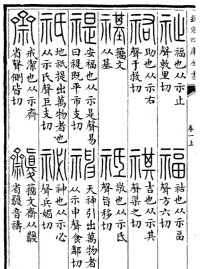 欽定四庫全書
卷一上
祉福也从示止聲敕里切
福祜也从示畐聲方六切
祐助也从示右聲于救切
祺吉也从示其聲渠之切
禥籀文从基
祗敬也从示氐聲旨移切
禔安福也从示是聲易曰禔既平市支切
神天神引出萬物者也从示申聲食鄰切
祇地祇提出萬物者也从示氏聲巨支切
祕神也从示必聲兵媚切
齋戒潔也从示齊省聲側皆切
籀文齋从省音禱